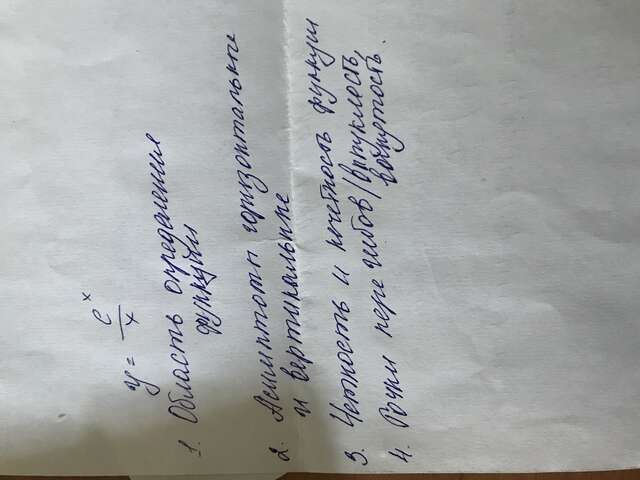 y = e^x / x
1. Область определения
функции
2. Асимптоты горизонтальные
и вертикальные
3. Четность и нечетность функции
4. Точки перегибов / выпуклость,
вогнутость.